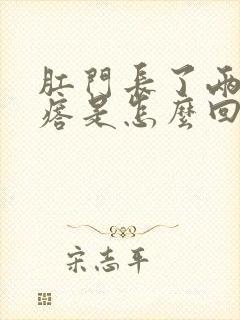 肛門長了兩
痞是怎麼回
宋志平